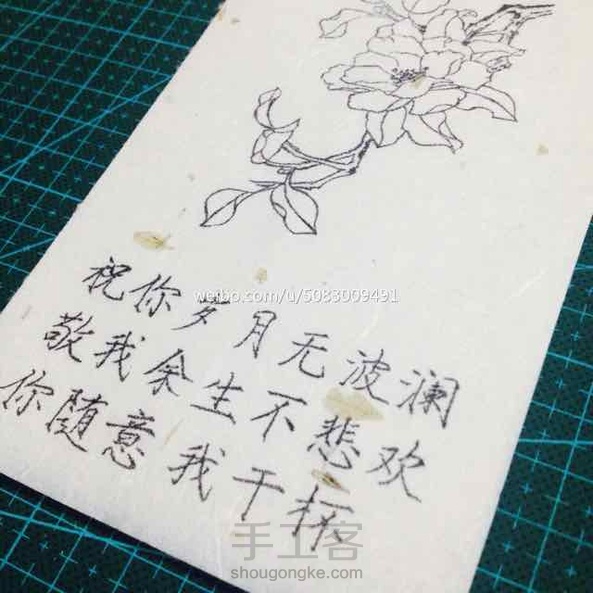 weibo.com/u/5083009491
祝你岁月无波澜
敬我余生不悲欢
你随意我干杯
手工客
shougongke.com